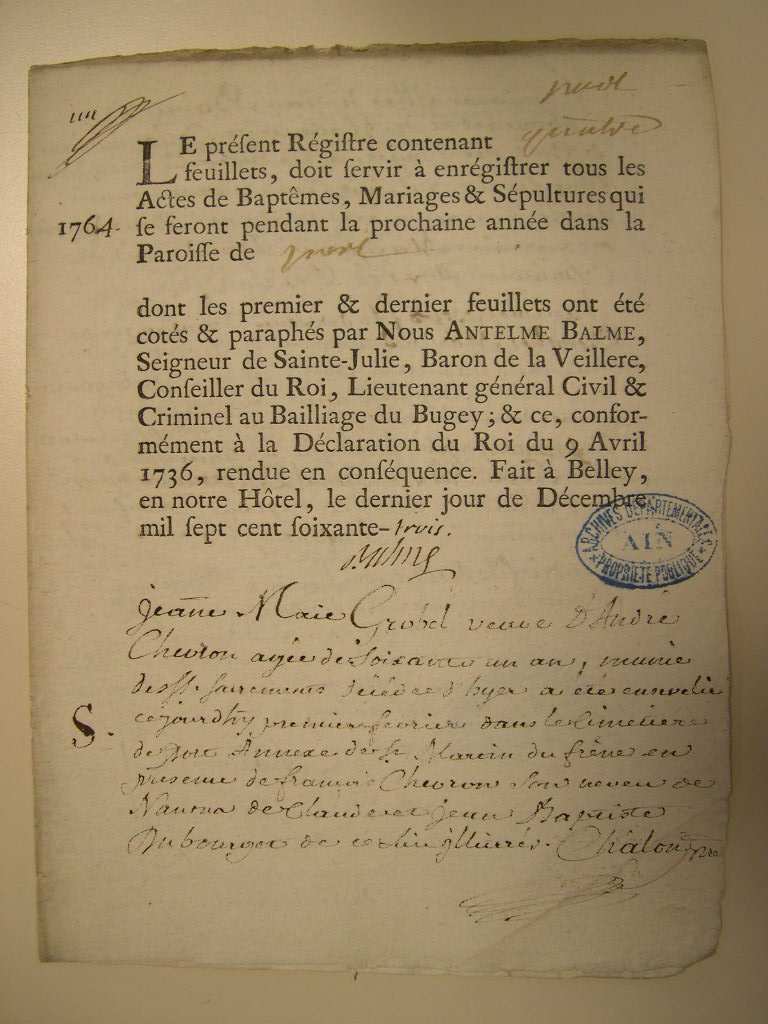 port
iiii
quatre
LE préſent Régiſtre contenant
feuillets, doit ſervir à enrégiſtrer tous les
Actes de Baptêmes, Mariages & Sépultures qui
1764. ſe feront pendant la prochaine année dans la
Paroiſſe de port
dont les premier & dernier feuillets ont été
cotés & paraphés par Nous ANTELME BALME,
Seigneur de Sainte-Julie, Baron de la Veillere,
Conſeiller du Roi, Lieutenant général Civil &
Criminel au Bailliage du Bugey; & ce, confor-
mément à la Déclaration du Roi du 9 Avril
1736, rendue en conſéquence. Fait à Belley,
en notre Hôtel, le dernier jour de Décembre
mil ſept cent ſoixante-trois.
Balme
ARCHIVES DÉPARTEMENTALES
AIN
PROPRIÉTÉ PUBLIQUE
jeanne Marie veuve D'André
Chevron agée de soixante un an, munie
des sts. sacrements décédée d'hyer a été ensevelie
S. ce jourdhuy premier fevrier dans le cimetiere
de port Annexe de st. Martin du frêne en
presence de françois Chevron son neveu de
Nantua de Claude et jean Baptiste
Dubourget de ce lieu illiterés. Châlon